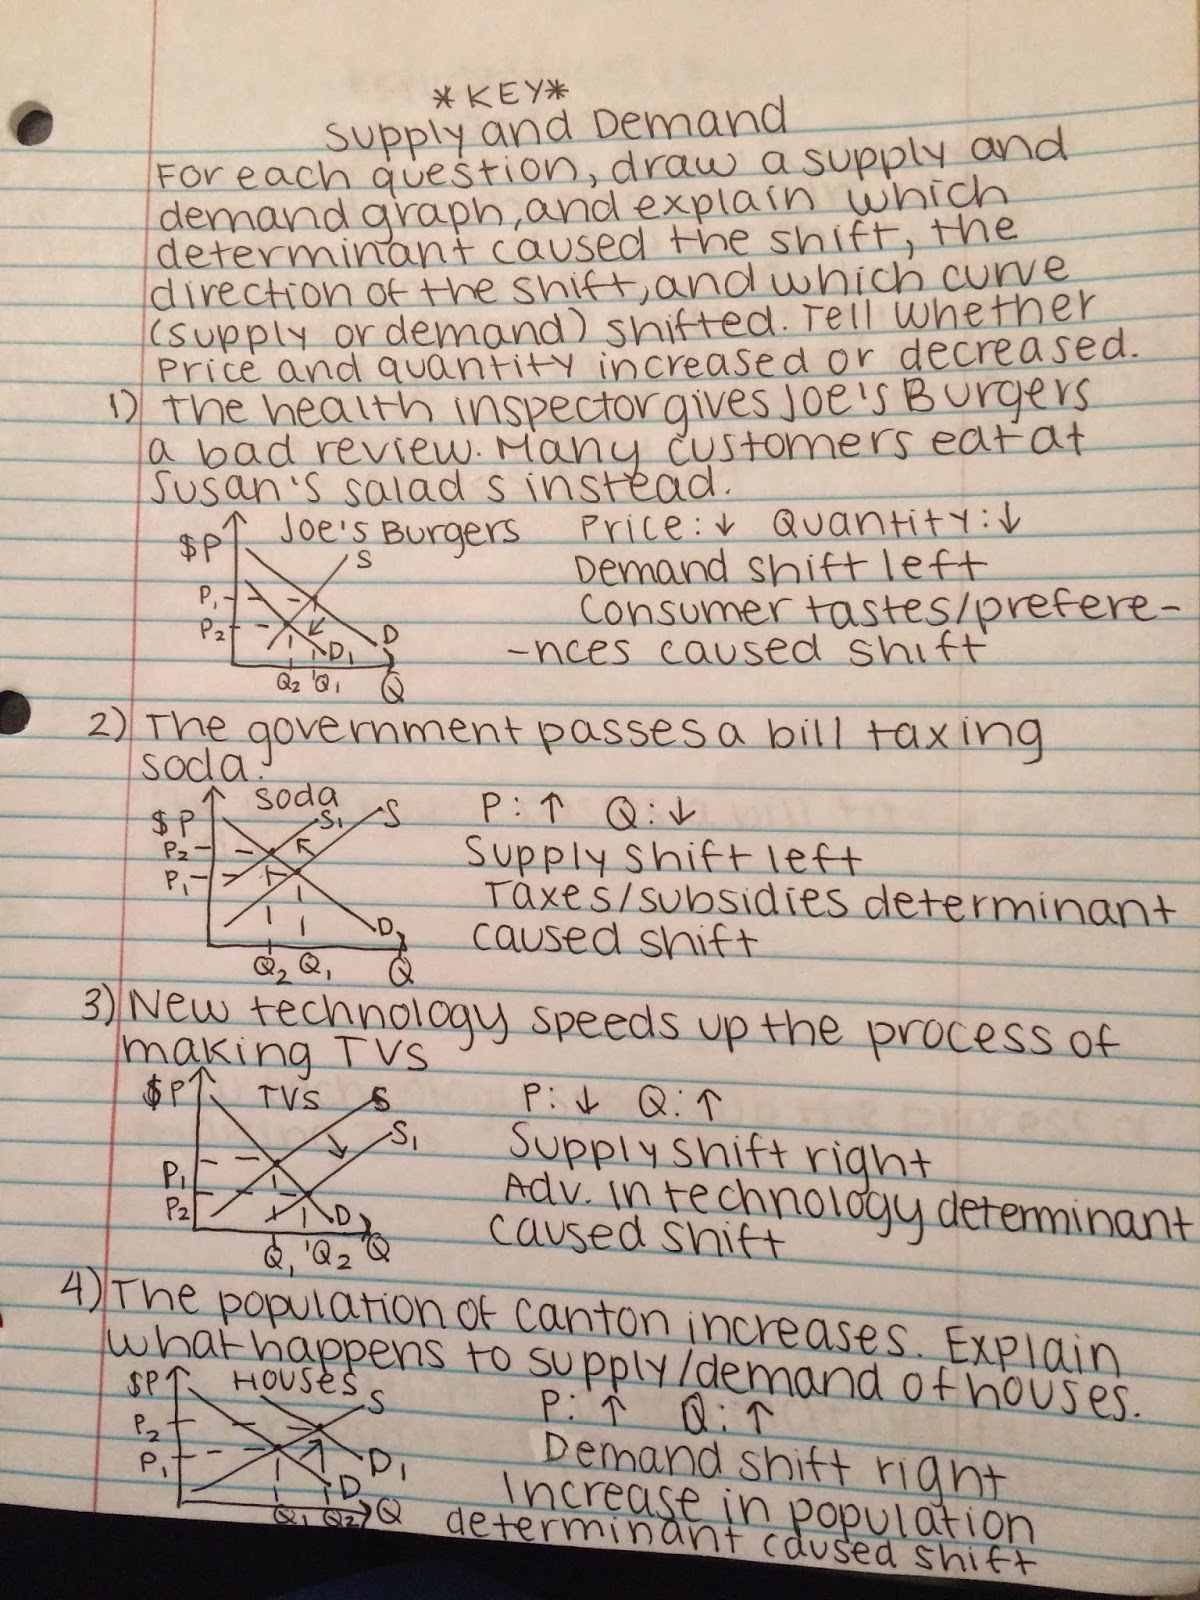 *KEY*
Supply and Demand
For each question, draw a supply and
demand graph, and explain which
determinant caused the shift, the
direction of the shift, and which curve
(supply or demand) shifted. Tell whether
price and quantity increased or decreased.
1) The health inspector gives Joe's Burgers
a bad review. Many customers eat at
Susan's salads instead.
Joe's Burgers
Price: ↓ Quantity: ↓
$P
S
Demand shift left
P₁
Consumer tastes/prefere-
P₂
D
D₁
-nces caused shift
Q₂ Q₁ Q
2) The government passes a bill taxing
soda.
Soda
P: ↑ Q: ↓
$P
S₁
S
P₂
Supply shift left
P₁
Taxes/subsidies determinant
D
caused shift
Q₂ Q₁ Q
3) New technology speeds up the process of
making TVs
$P
TVs
S
P: ↓ Q: ↑
S₁
Supply shift right
P₁
Adv. in technology determinant
P₂
D
caused shift
Q₁ Q₂ Q
4) The population of Canton increases. Explain
what happens to supply/demand of houses.
$P
Houses
S
P: ↑ Q: ↑
P₂
Demand shift right
P₁
D₁
D
Increase in population
Q₁ Q₂ Q
determinant caused shift